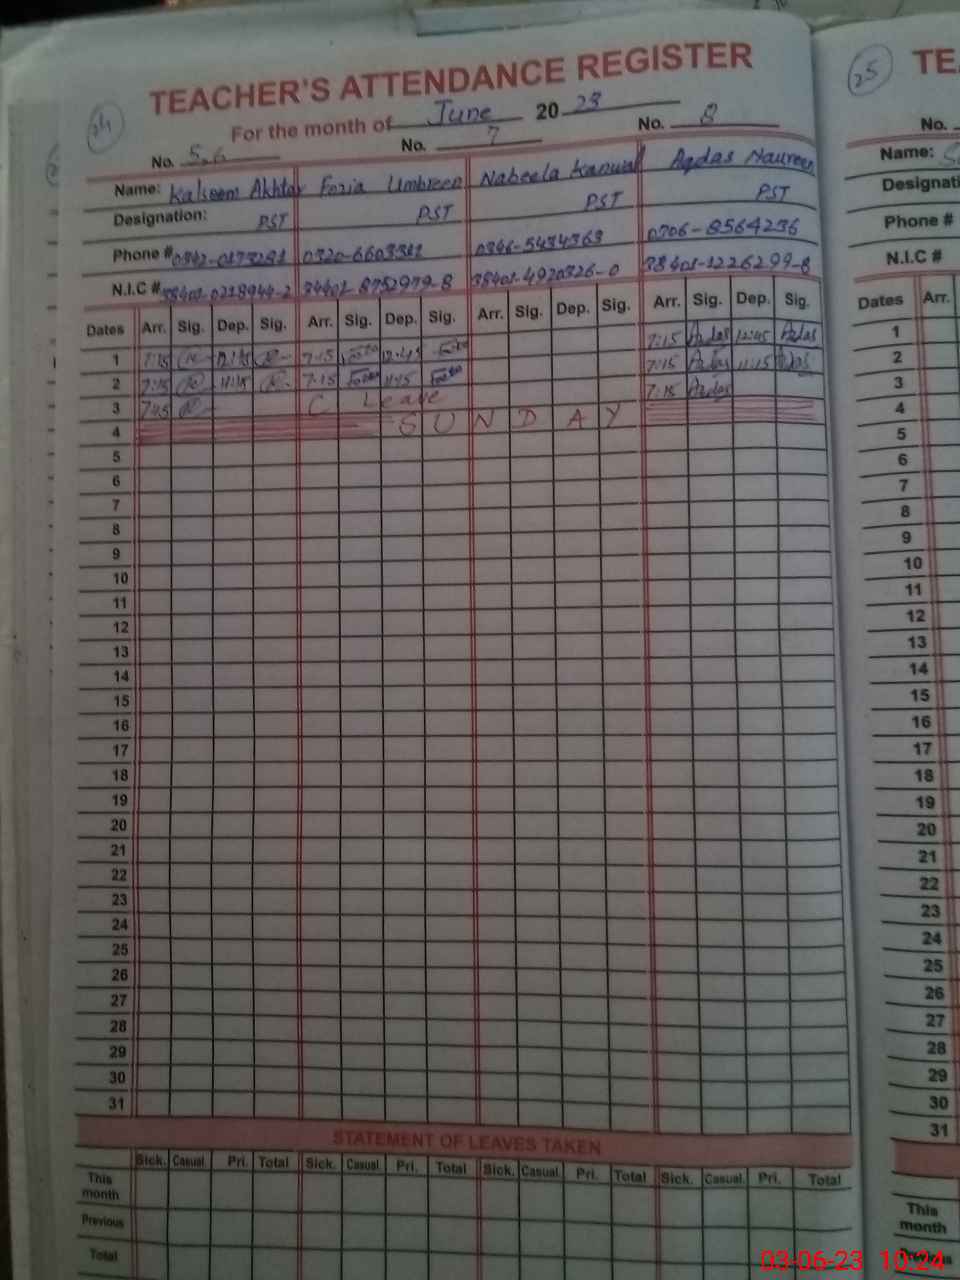 TEACHER'S ATTENDANCE REGISTER
24
For the month of June 2023
No. 5,6 No. 7 No. 8
Name: Kalsoom Akhtar Fozia Umbreen Nabeela Kanwal Aqdas Naureen
Designation: PST PST PST PST
Phone # 0320-6603311 0346-5434363 0306-8564236
N.I.C # 38401-0218944-2 34401-8752979-8 38401-4920326-0 38401-1226299-8
Dates Arr. Sig. Dep. Sig. Arr. Sig. Dep. Sig. Arr. Sig. Dep. Sig. Arr. Sig. Dep. Sig.
1 7:15 12:45 7-15 12-45 7:15 Aqdas 12:45 Aqdas
2 7:15 11:15 7-15 1115 7:15 Aqdas 11:15 Aqdas
3 C Leave 7:15 Aqdas
4 SUNDAY
5
6
7
8
9
10
11
12
13
14
15
16
17
18
19
20
21
22
23
24
25
26
27
28
29
30
31
STATEMENT OF LEAVES TAKEN
Sick. Casual. Pri. Total Sick. Casual. Pri. Total Sick. Casual. Pri. Total Sick. Casual. Pri. Total
This month
Previous
Total
25
TE
No.
Name:
Designati
Phone #
N.I.C #
Dates Arr.
1
2
3
4
5
6
7
8
9
10
11
12
13
14
15
16
17
18
19
20
21
22
23
24
25
26
27
28
29
30
31
This month
Previous
03-06-23 10:24